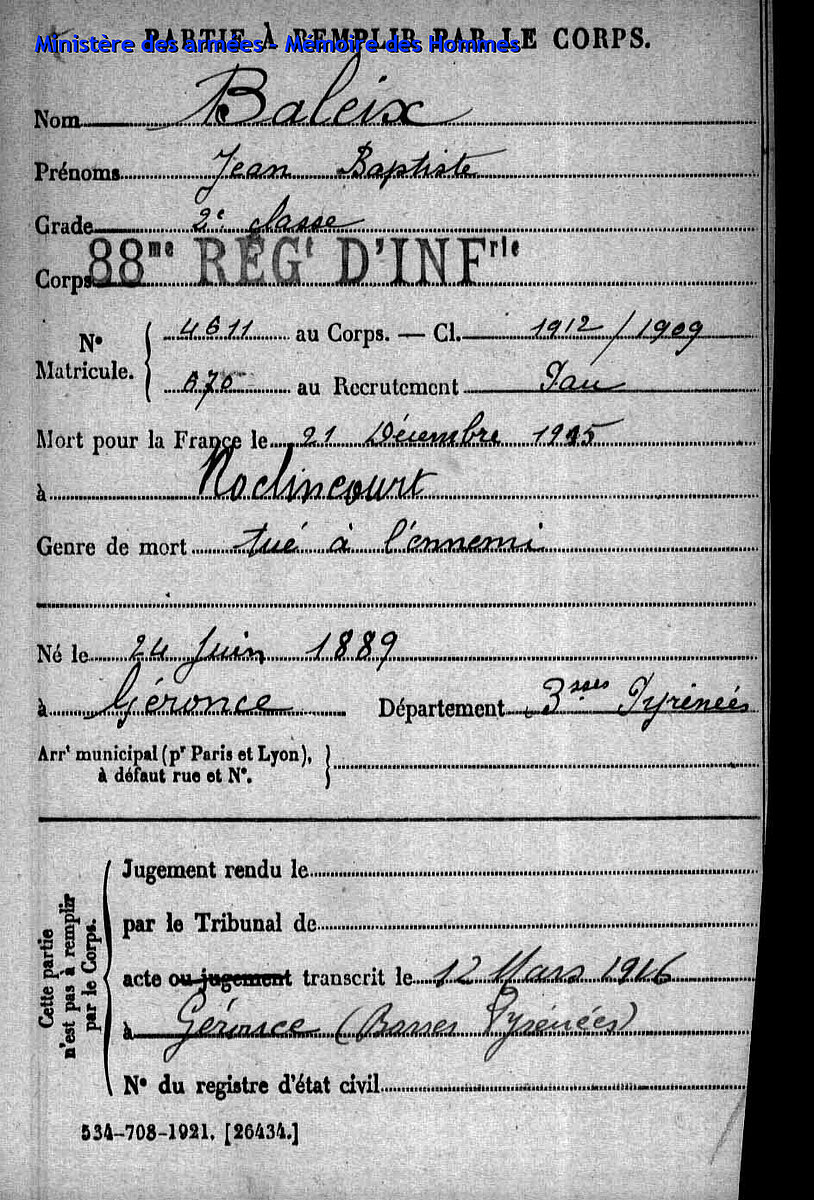 PARTIE À REMPLIR PAR LE CORPS.
Ministère des armées - Mémoire des Hommes
Nom Baleix
Prénoms Jean Baptiste
Grade 2e classe
Corps 88me RÉGt D'INFrie
No Matricule. 4611 au Corps. — Cl. 1912 / 1909
676 au Recrutement Pau
Mort pour la France le 21 Décembre 1915
à Roclincourt
Genre de mort tué à l'ennemi
Né le 24 Juin 1889
à Géronce Département Bsses Pyrénées
Arrt municipal (pr Paris et Lyon),
à défaut rue et No.
Cette partie
n'est pas à remplir
par le Corps.
Jugement rendu le
par le Tribunal de
acte ou jugement transcrit le 12 Mars 1916
à Géronce (Basses Pyrénées)
No du registre d'état civil
534-708-1921. [26434.]